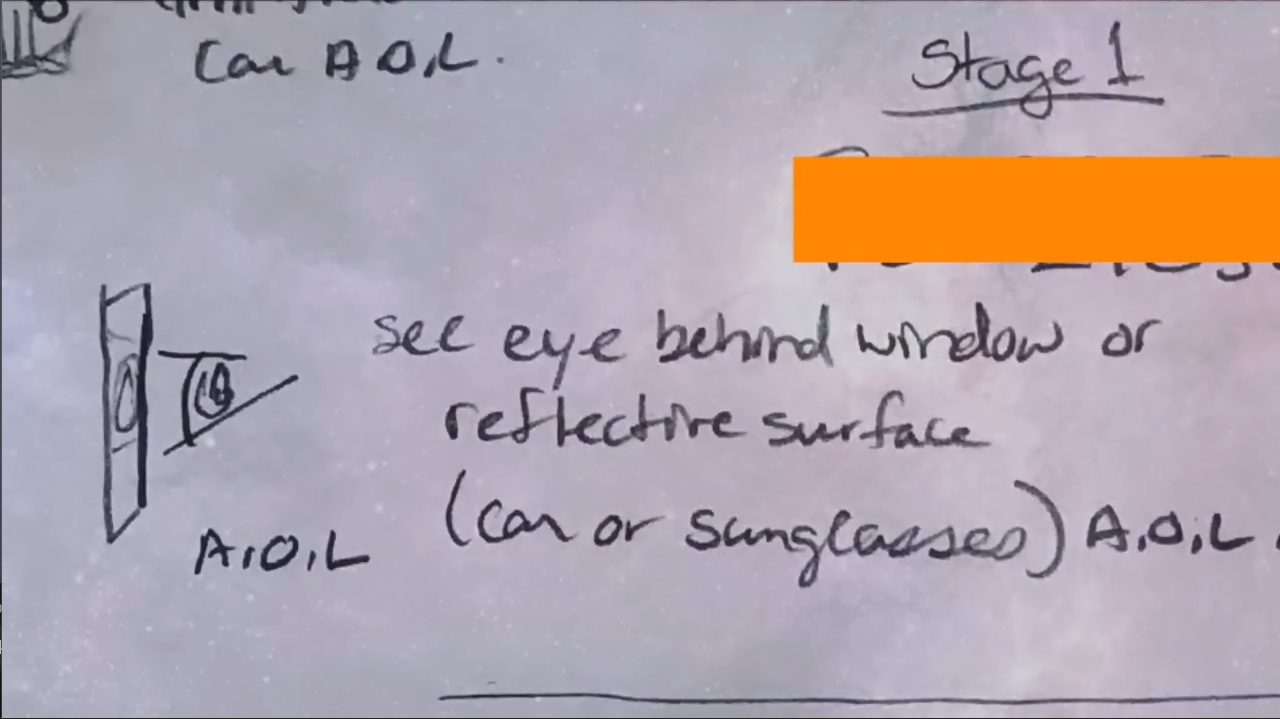 Car A.O.L.
Stage 1
see eye behind window or
reflective surface
(car or sunglasses) A.O.L.
A.O.L